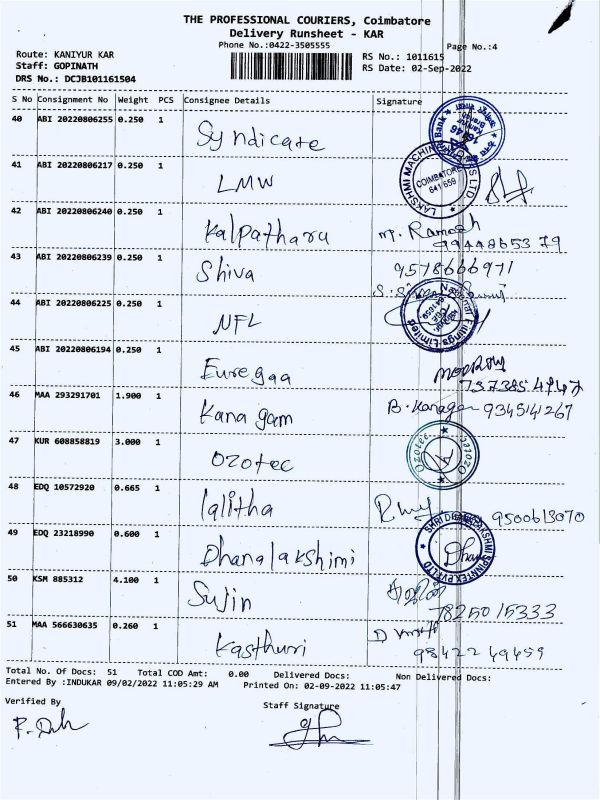 THE PROFESSIONAL COURIERS, Coimbatore
Delivery Runsheet - KAR
Phone No.:0422-3505555
Page No.:4
Route: KANIYUR KAR
Staff: GOPINATH
DRS No.: DCJB101161504
RS No.: 1011615
RS Date: 02-Sep-2022
S No Consignment No Weight PCS Consignee Details Signature
40 ABI 20220806255 0.250 1 Syndicate
41 ABI 20220806217 0.250 1 LMW
LAKSHMI MACHINE
COIMBATORE
641 659
42 ABI 20220806240 0.250 1 Kalpatharu M. Ramesh
9944865379
43 ABI 20220806239 0.250 1 Shiva 9578666971
44 ABI 20220806225 0.250 1 NFL
National Fittings Limited
45 ABI 20220806194 0.250 1 Euregaa
7373854747
46 MAA 293291701 1.900 1 Kanagam B. Kanagan 934514267
47 KUR 608858819 3.000 1 Ozotec
48 EDQ 10572920 0.665 1 lalitha 9500613070
49 EDQ 23218990 0.600 1 Dhanalakshimi
SHRI DHANALAKSHMI SPINNTEX PVT LTD
50 KSM 885312 4.100 1 Sujin
7825015333
51 MAA 566630635 0.260 1 Kasthuri
9842249459
Total No. Of Docs: 51 Total COD Amt: 0.00 Delivered Docs: Non Delivered Docs:
Entered By :INDUKAR 09/02/2022 11:05:29 AM Printed On: 02-09-2022 11:05:47
Verified By
Staff Signature